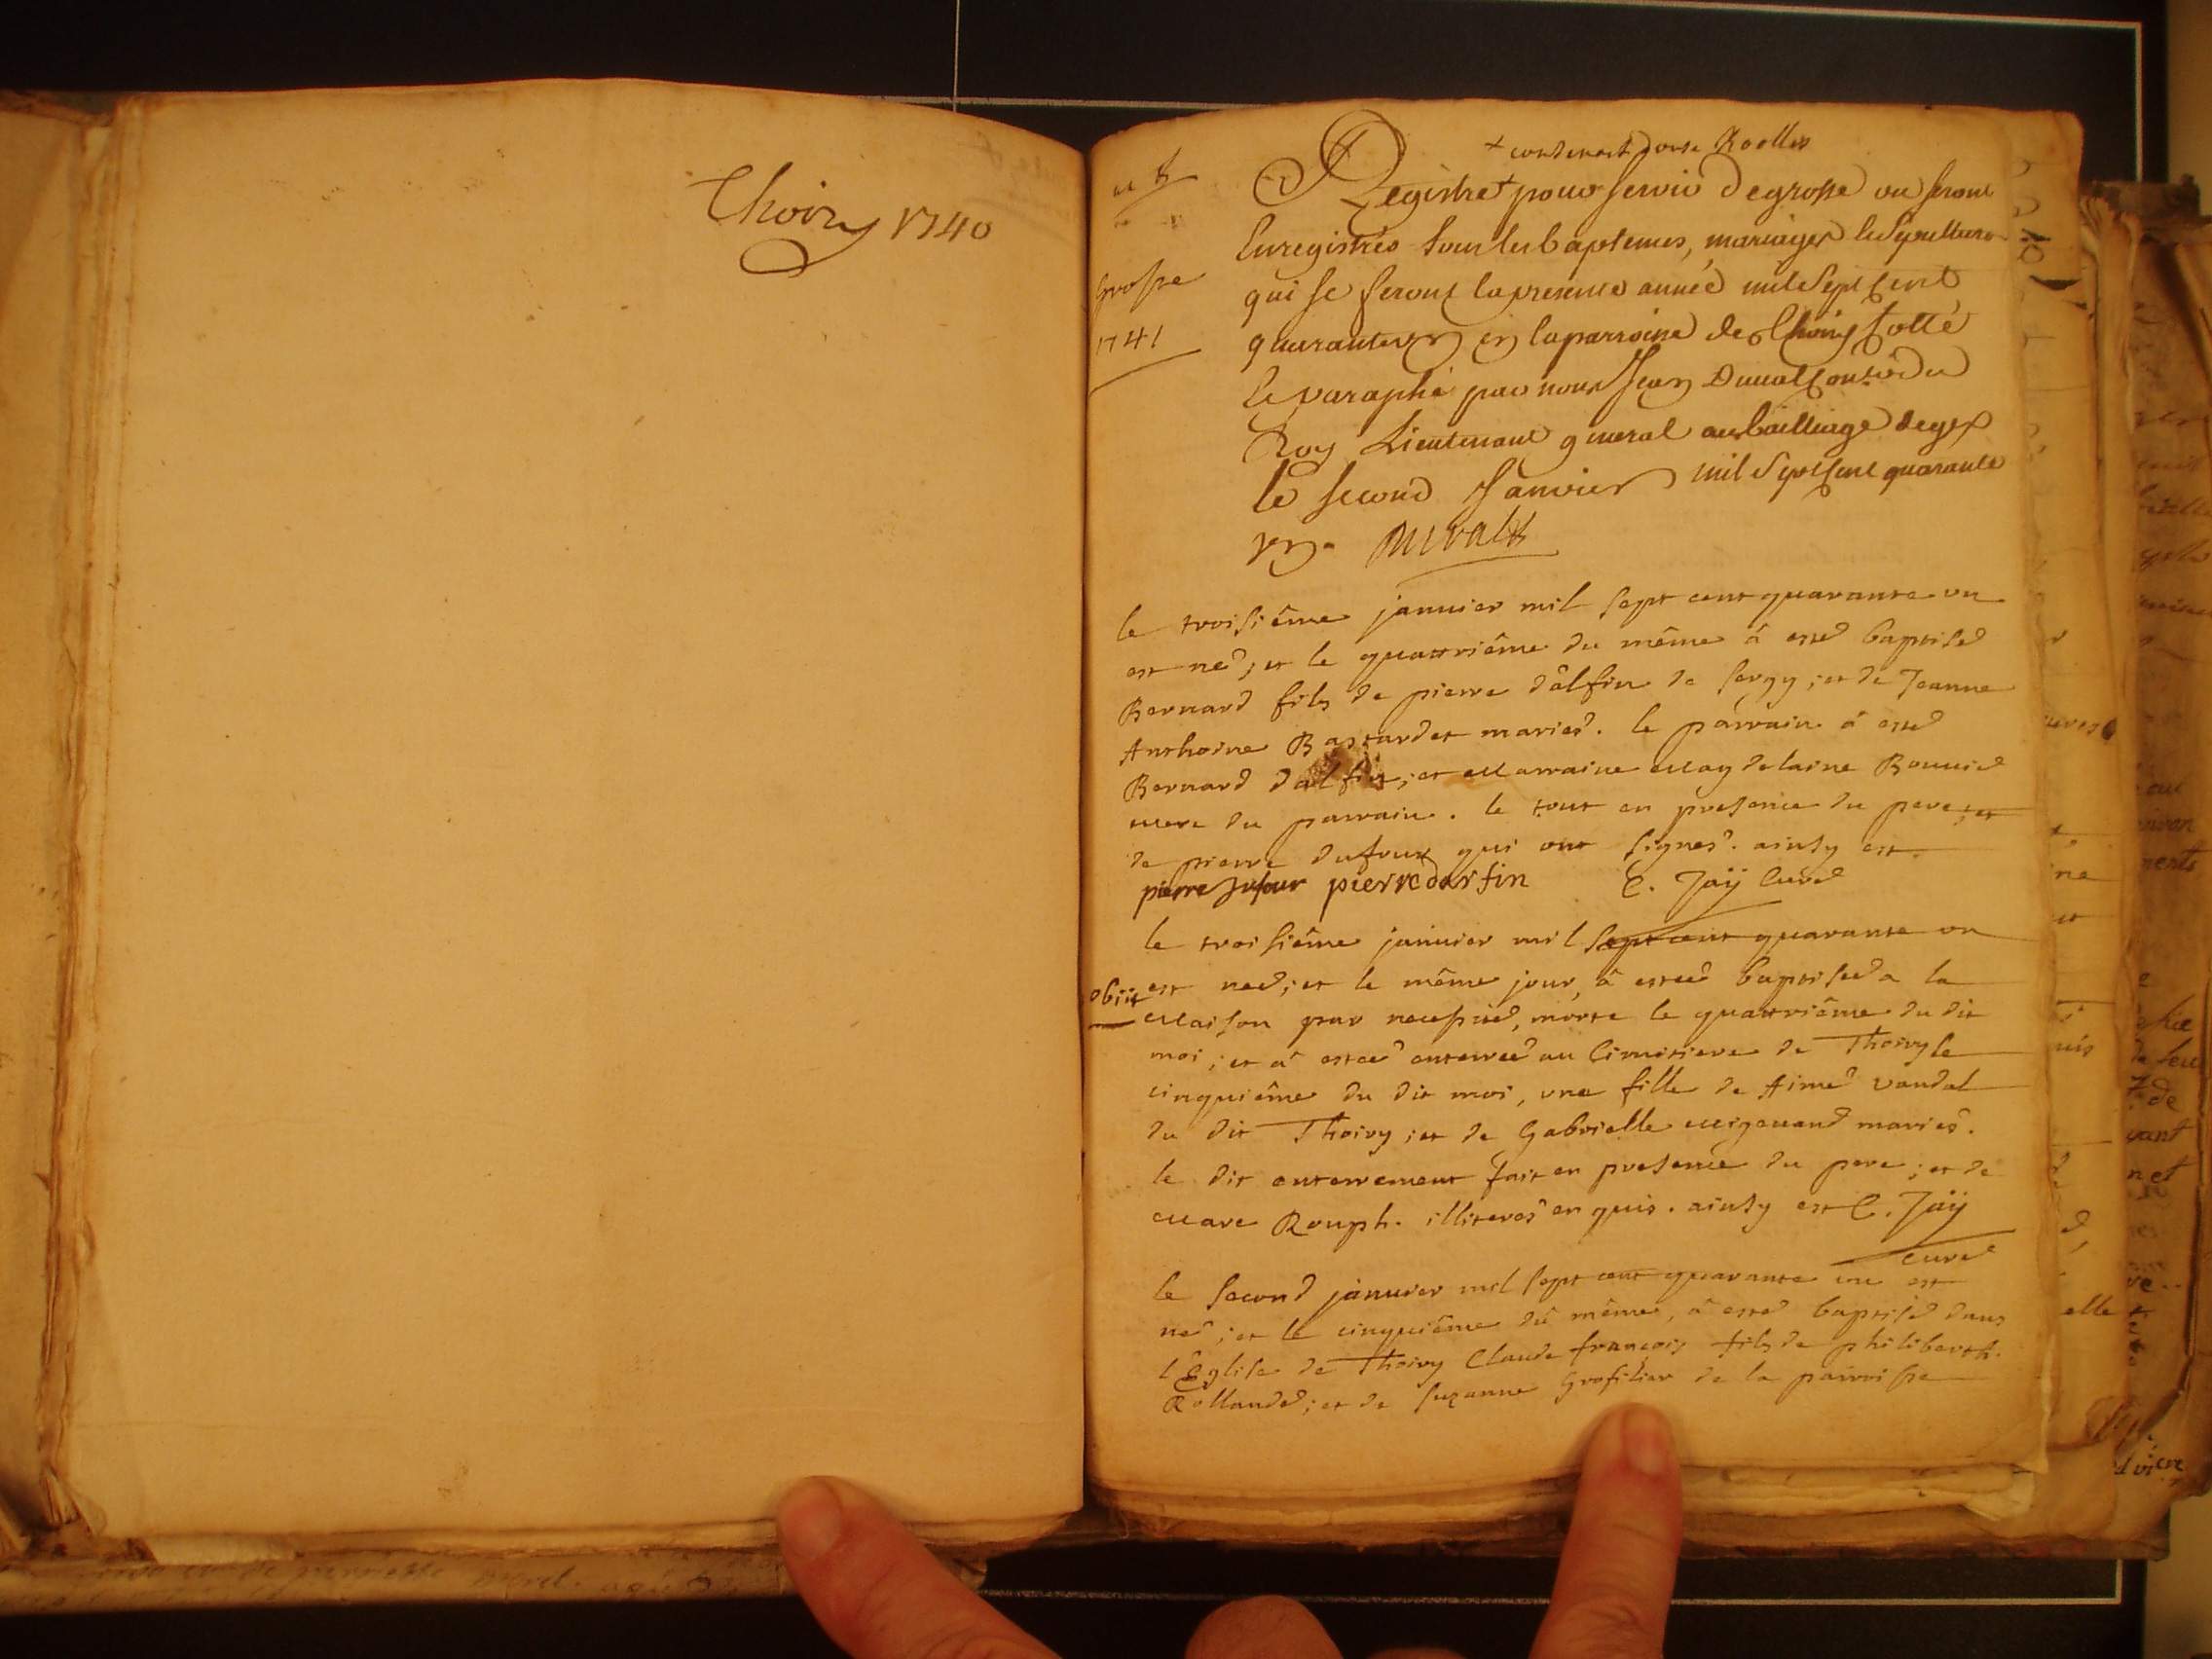 Thoiry 1740
+ contenant onze Roolles
Registre + pour servir de grosse ou seront
Enregistrés tous les baptemes, mariages & sepultures
qui se feront la presente année mil sept cent
quarante un en la parroisse de Thoiry Cotté
& paraphé par nous Jean Duval Conser du
Roy Lieutenant general au bailliage de gex
le second Janvier mil sept cent quarante
un. Duval
Grosse
1741
le troisiême januier mil sept cent quarante un
est né; et le quattriême du même â esté baptisé
Bernard fils de pierre dâlfin de sergy; et de Jeanne
Anthoine Bastardet mariés. le parrain â esté
Bernard dalfin; et Marraine Magdelaine Bouuié
mere du parrain. le tout en presence du pere; et
de pierre dufour qui ont signés. ainsy est.
pierre dufour pierre darfin C. Jaÿ Curé
le troisiême januier mil sept cent quarante un
obiit
est née; et le même jour, â estée baptisée a la
Maison par necessité, morte le quattriême du dit
moi; et â estée enterrée au Cimitiere de Thoiry le
cinquiême du dit moi, une fille de Aimé Vandal
du dit Thoiry; et de Gabrielle Migouand mariés.
le dit enterrement fait en presence du pere; et de
Marc Rouph. illiterés enquis. ainsy est C. Jaÿ
Curé
le second januier mil sept cent quarante un est
né; et le cinquiême du même, â esté baptisé dans
l'Eglise de Thoiry Claude françois fils de philiberth.
Rollandé; et de suzanne Grosfilier de la parroisse